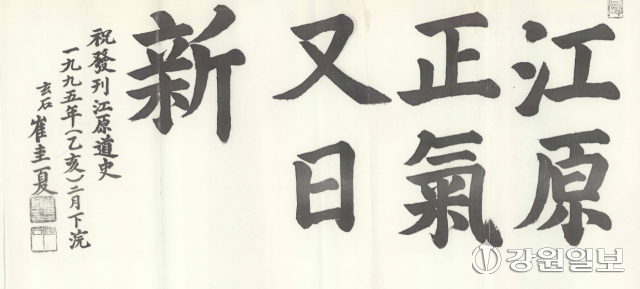 江原
正氣
又日
新
祝發刊江原道史
一九九五年(乙亥)二月下浣
玄石 崔圭夏
강원일보